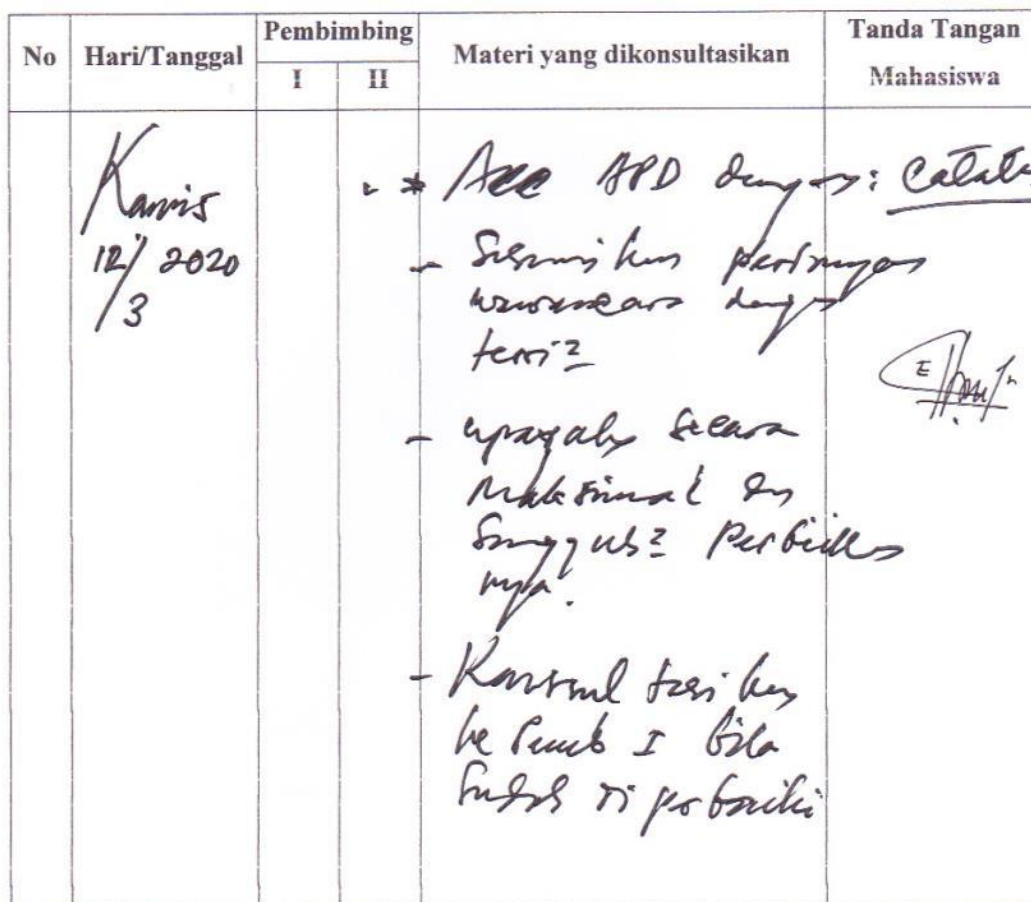 No Hari/Tanggal Pembimbing Materi yang dikonsultasikan Tanda Tangan
I II Mahasiswa
Kamis
12/3 2020
* Acc APD dengan: Catatan
- Sesuaikan pertanyaan
wawancara dengan
teori2
- upayakan secara
Maksimal dan
Sungguh2 Perbaikan
nya.
- Konsultasikan
ke Pemb I bila
Sudah di perbaiki